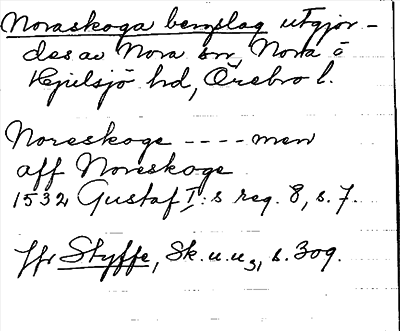 Noraskoga bergslag utgjor-
des av Nora sn, Nora o
Hjulsjö hd, Örebro l.
Noreskoge ---- men
aff Noreskoge
1532 Gustaf I:s reg. 8, s. 7.
Jfr Styffe, Sk. u. u 3, s. 309.